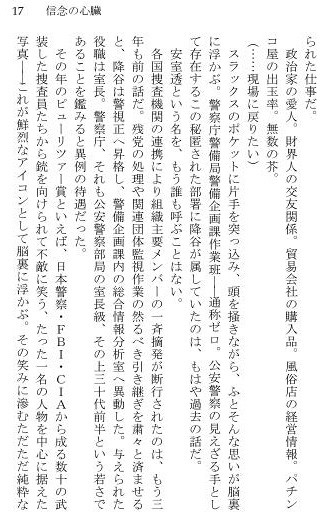 17　信念の心臓
られた仕事だ。
　政治家の愛人。財界人の交友関係。貿易会社の購入品。風俗店の経営情報。パチン
コ屋の出玉率。無数の茶。
（……現場に戻りたい）
　スラックスのポケットに片手を突っ込み、頭を掻きながら、ふとそんな思いが脳裏
に浮かぶ。警察庁警備局警備企画課作業班――通称ゼロ。公安警察の見えざる手とし
て存在するこの秘匿された部署に降谷が属していたのは、もはや過去の話だ。
　安室透という名を、もう誰も呼ぶことはない。
　各国捜査機関の連携により組織主要メンバーの一斉摘発が断行されたのは、もう三
年も前の話だ。残党の処理や関連団体監視作業の然るべき引き継ぎを粛々と済ませる
と、降谷は警視正へ昇格し、警備企画課内の総合情報分析室へ異動した。与えられた
役職は室長。警察庁、それも公安警察部局の室長級、その上三十代前半という若さで
あることを鑑みると異例の待遇だった。
　その年のピューリツァー賞といえば、日本警察・ＦＢＩ・ＣＩＡから成る数十の武
装した捜査員たちから銃を向けられて不敵に笑う、たった一名の人物を中心に据えた
写真――これが鮮烈なアイコンとして脳裏に浮かぶ。その笑みに滲むただただ純粋な